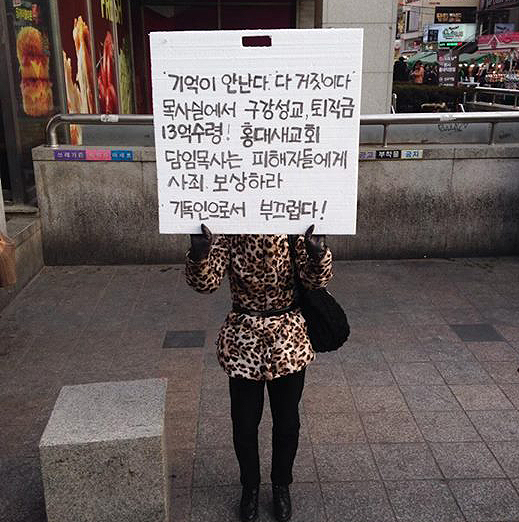 "기억이 안난다. 다 거짓이다"
목사실에서 구강성교, 퇴직금
13억수령! 홍대새교회
담임목사는 피해자들에게
사죄. 보상하라
기독인으로서 부끄럽다!
쓰레기 부착물 금지